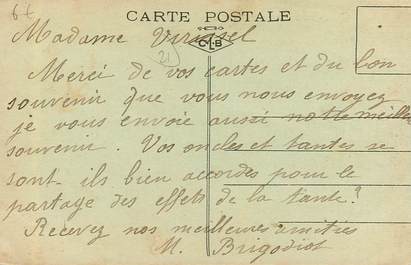 6f
CARTE POSTALE
Madame
CLB
21
Merci de vos cartes et du bon
souvenir que vous nous envoyez
je vous envoie aussi notre meilleur
souvenir. Vos oncles et tantes se
sont-ils bien accordés pour le
partage des effets de la tante?
Recevez nos meilleures amitiés
M. Brigodiot